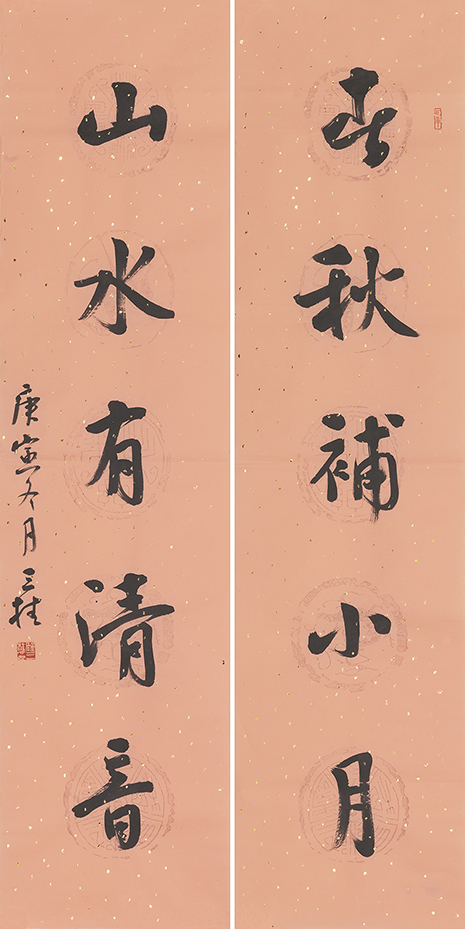 春秋補小月
山水有清音
庚寅冬月三